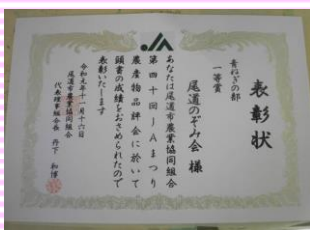 表彰状
青ねぎの部
一等賞
尾道のぞみ会 様
あなたは尾道市農業協同組合
第四十回JAまつり
農産物品評会に於いて
頭書の成績をおさめられたので
表彰いたします
令和元年十一月十六日
尾道市農業協同組合
代表理事組合長 丹下 和博
JA